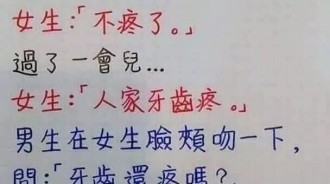 女生:「不疼了。」
過了一會兒...
女生:「人家牙齒疼。」
男生在女生臉頰吻一下,
問:「牙齒還疼嗎?